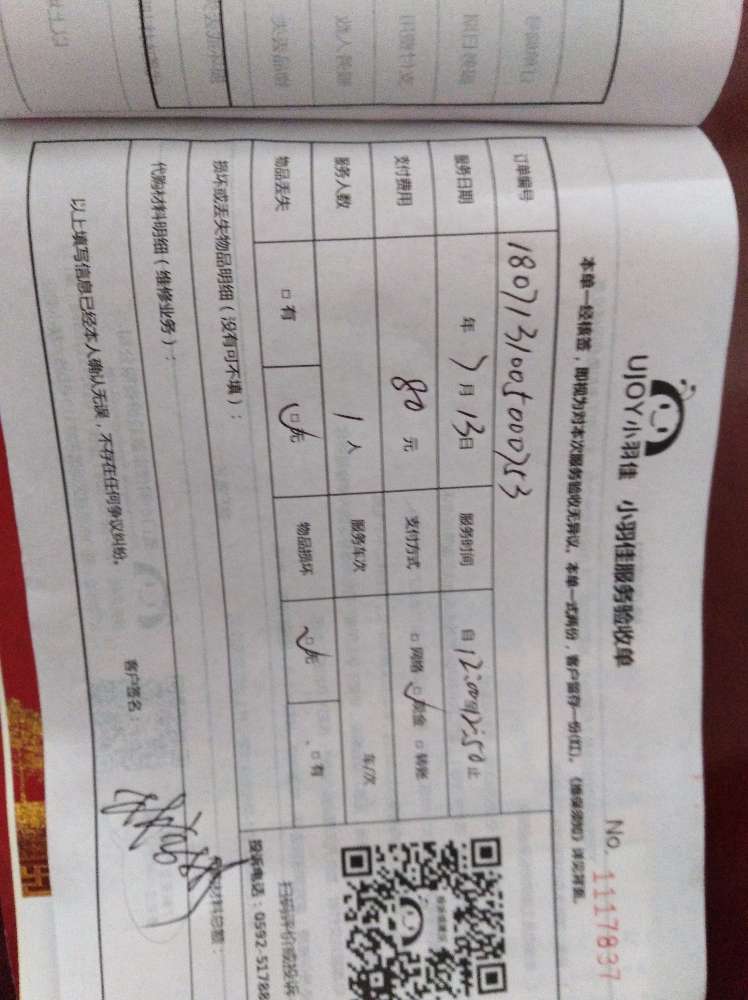 UJOY小羽佳 小羽佳服务验收单
No. 1117837
本单一经核签，即视为对本次服务验收无异议。本单一式两份，客户留存一份(红)。《维保须知》详见背面。
订单编号 1807131005000253
服务日期 年 7月13日 服务时间 自12:00至12:50止
支付费用 80元 支付方式 □网络 □现金 □转账
服务人数 1人 服务车次 车/次
物品丢失 □有 □无 物品损坏 □无 □有
扫码评价或投诉
投诉电话：0592-51788
损坏或丢失物品明细（没有可不填）：
代购材料明细（维修业务）： 材料总额：
以上填写信息已经本人确认无误，不存在任何争议纠纷。 客户签名：